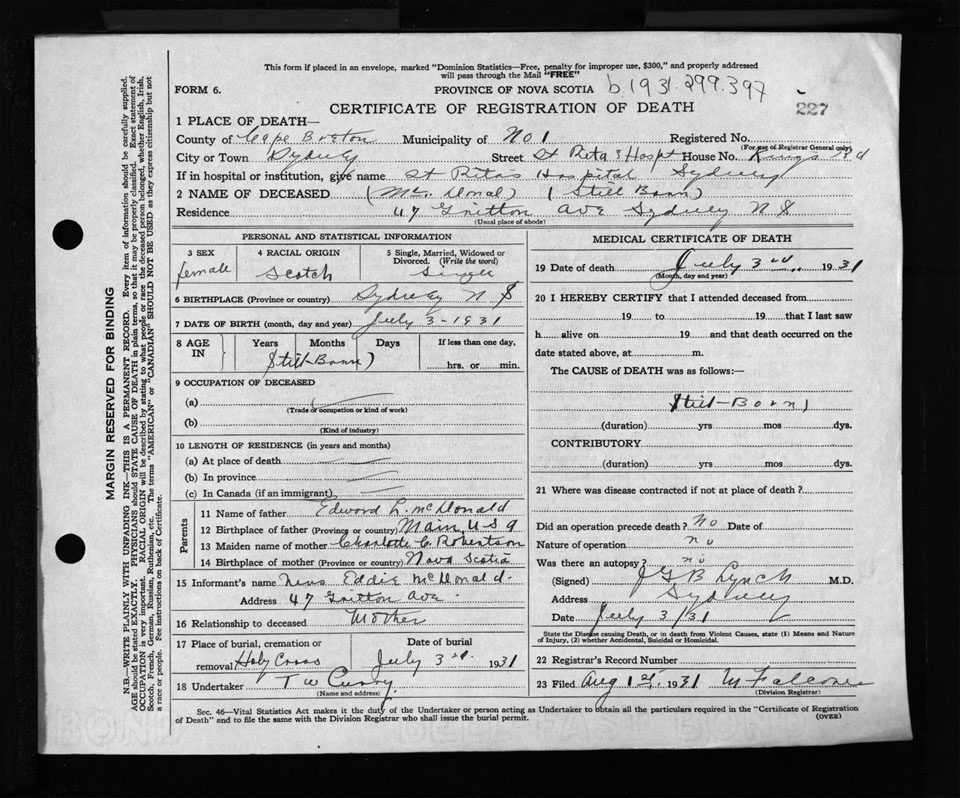 This form if placed in an envelope, marked "Dominion Statistics—Free, penalty for improper use, $300," and properly addressed
will pass through the Mail "FREE"
FORM 6. PROVINCE OF NOVA SCOTIA b.1931.299.397
CERTIFICATE OF REGISTRATION OF DEATH 227
1 PLACE OF DEATH—
County of Cape Breton Municipality of No 1 Registered No.
(For use of Registrar General only)
City or Town Sydney Street St Rita's Hospt House No. Kings Rd
If in hospital or institution, give name St Ritas Hospital Sydney
2 NAME OF DECEASED (Mc Donal) (Still Born)
Residence 47 Ave Sydney N S
(Usual place of abode)
PERSONAL AND STATISTICAL INFORMATION
3 SEX 4 RACIAL ORIGIN 5 Single, Married, Widowed or
Divorced. (Write the word)
female Scotch Single
6 BIRTHPLACE (Province or country) Sydney N. S
7 DATE OF BIRTH (month, day and year) July 3-1931
8 AGE IN Years Months Days If less than one day,
Still-Born) hrs. or min.
9 OCCUPATION OF DECEASED
(a)
(Trade or occupation or kind of work)
(b)
(Kind of industry)
10 LENGTH OF RESIDENCE (in years and months)
(a) At place of death
(b) In province
(c) In Canada (if an immigrant)
Parents
11 Name of father Edward L. McDonald
12 Birthplace of father (Province or country) Main, U S A
13 Maiden name of mother Charlotte C. Robertson
14 Birthplace of mother (Province or country) Nova Scotia
15 Informant's name Eddie McDonald.
Address 47 Ave.
16 Relationship to deceased Mother
17 Place of burial, cremation or Date of burial
removal Holy Cross July 3rd. 1931
18 Undertaker T W Curry.
(Name and address)
MEDICAL CERTIFICATE OF DEATH
19 Date of death July 3rd 1931
(Month, day and year)
20 I HEREBY CERTIFY that I attended deceased from
19 to 19 that I last saw
h alive on 19 and that death occurred on the
date stated above, at m.
The CAUSE of DEATH was as follows:—
Still-Born)
(duration) yrs mos dys.
CONTRIBUTORY
(duration) yrs mos dys.
21 Where was disease contracted if not at place of death?
Did an operation precede death? No Date of
Nature of operation no
Was there an autopsy? no
(Signed) J G B Lynch M.D.
Address Sydney
Date July 3/31
State the Disease causing Death, or in death from Violent Causes, state (1) Means and Nature
of Injury, (2) whether Accidental, Suicidal or Homicidal.
22 Registrar's Record Number
23 Filed Aug 1st, 1931
(Division Registrar)
Sec. 46—Vital Statistics Act makes it the duty of the Undertaker or person acting as Undertaker to obtain all the particulars required in the "Certificate of Registration
of Death" and to file the same with the Division Registrar who shall issue the burial permit. (OVER)
MARGIN RESERVED FOR BINDING
N.B.—WRITE PLAINLY WITH UNFADING INK—THIS IS A PERMANENT RECORD. Every item of information should be carefully supplied.
AGE should be stated EXACTLY. PHYSICIANS should STATE CAUSE OF DEATH in plain terms, so that it may be properly classified. Exact statement of
OCCUPATION is very important. RACIAL ORIGIN will be described by stating to what people or race the deceased person belonged, whether English, Irish,
Scotch, French, German, Russian, Ruthenian, etc. The terms "AMERICAN" or "CANADIAN" SHOULD NOT BE USED as they express citizenship but not
a race or people. See instructions on back of Certificate.